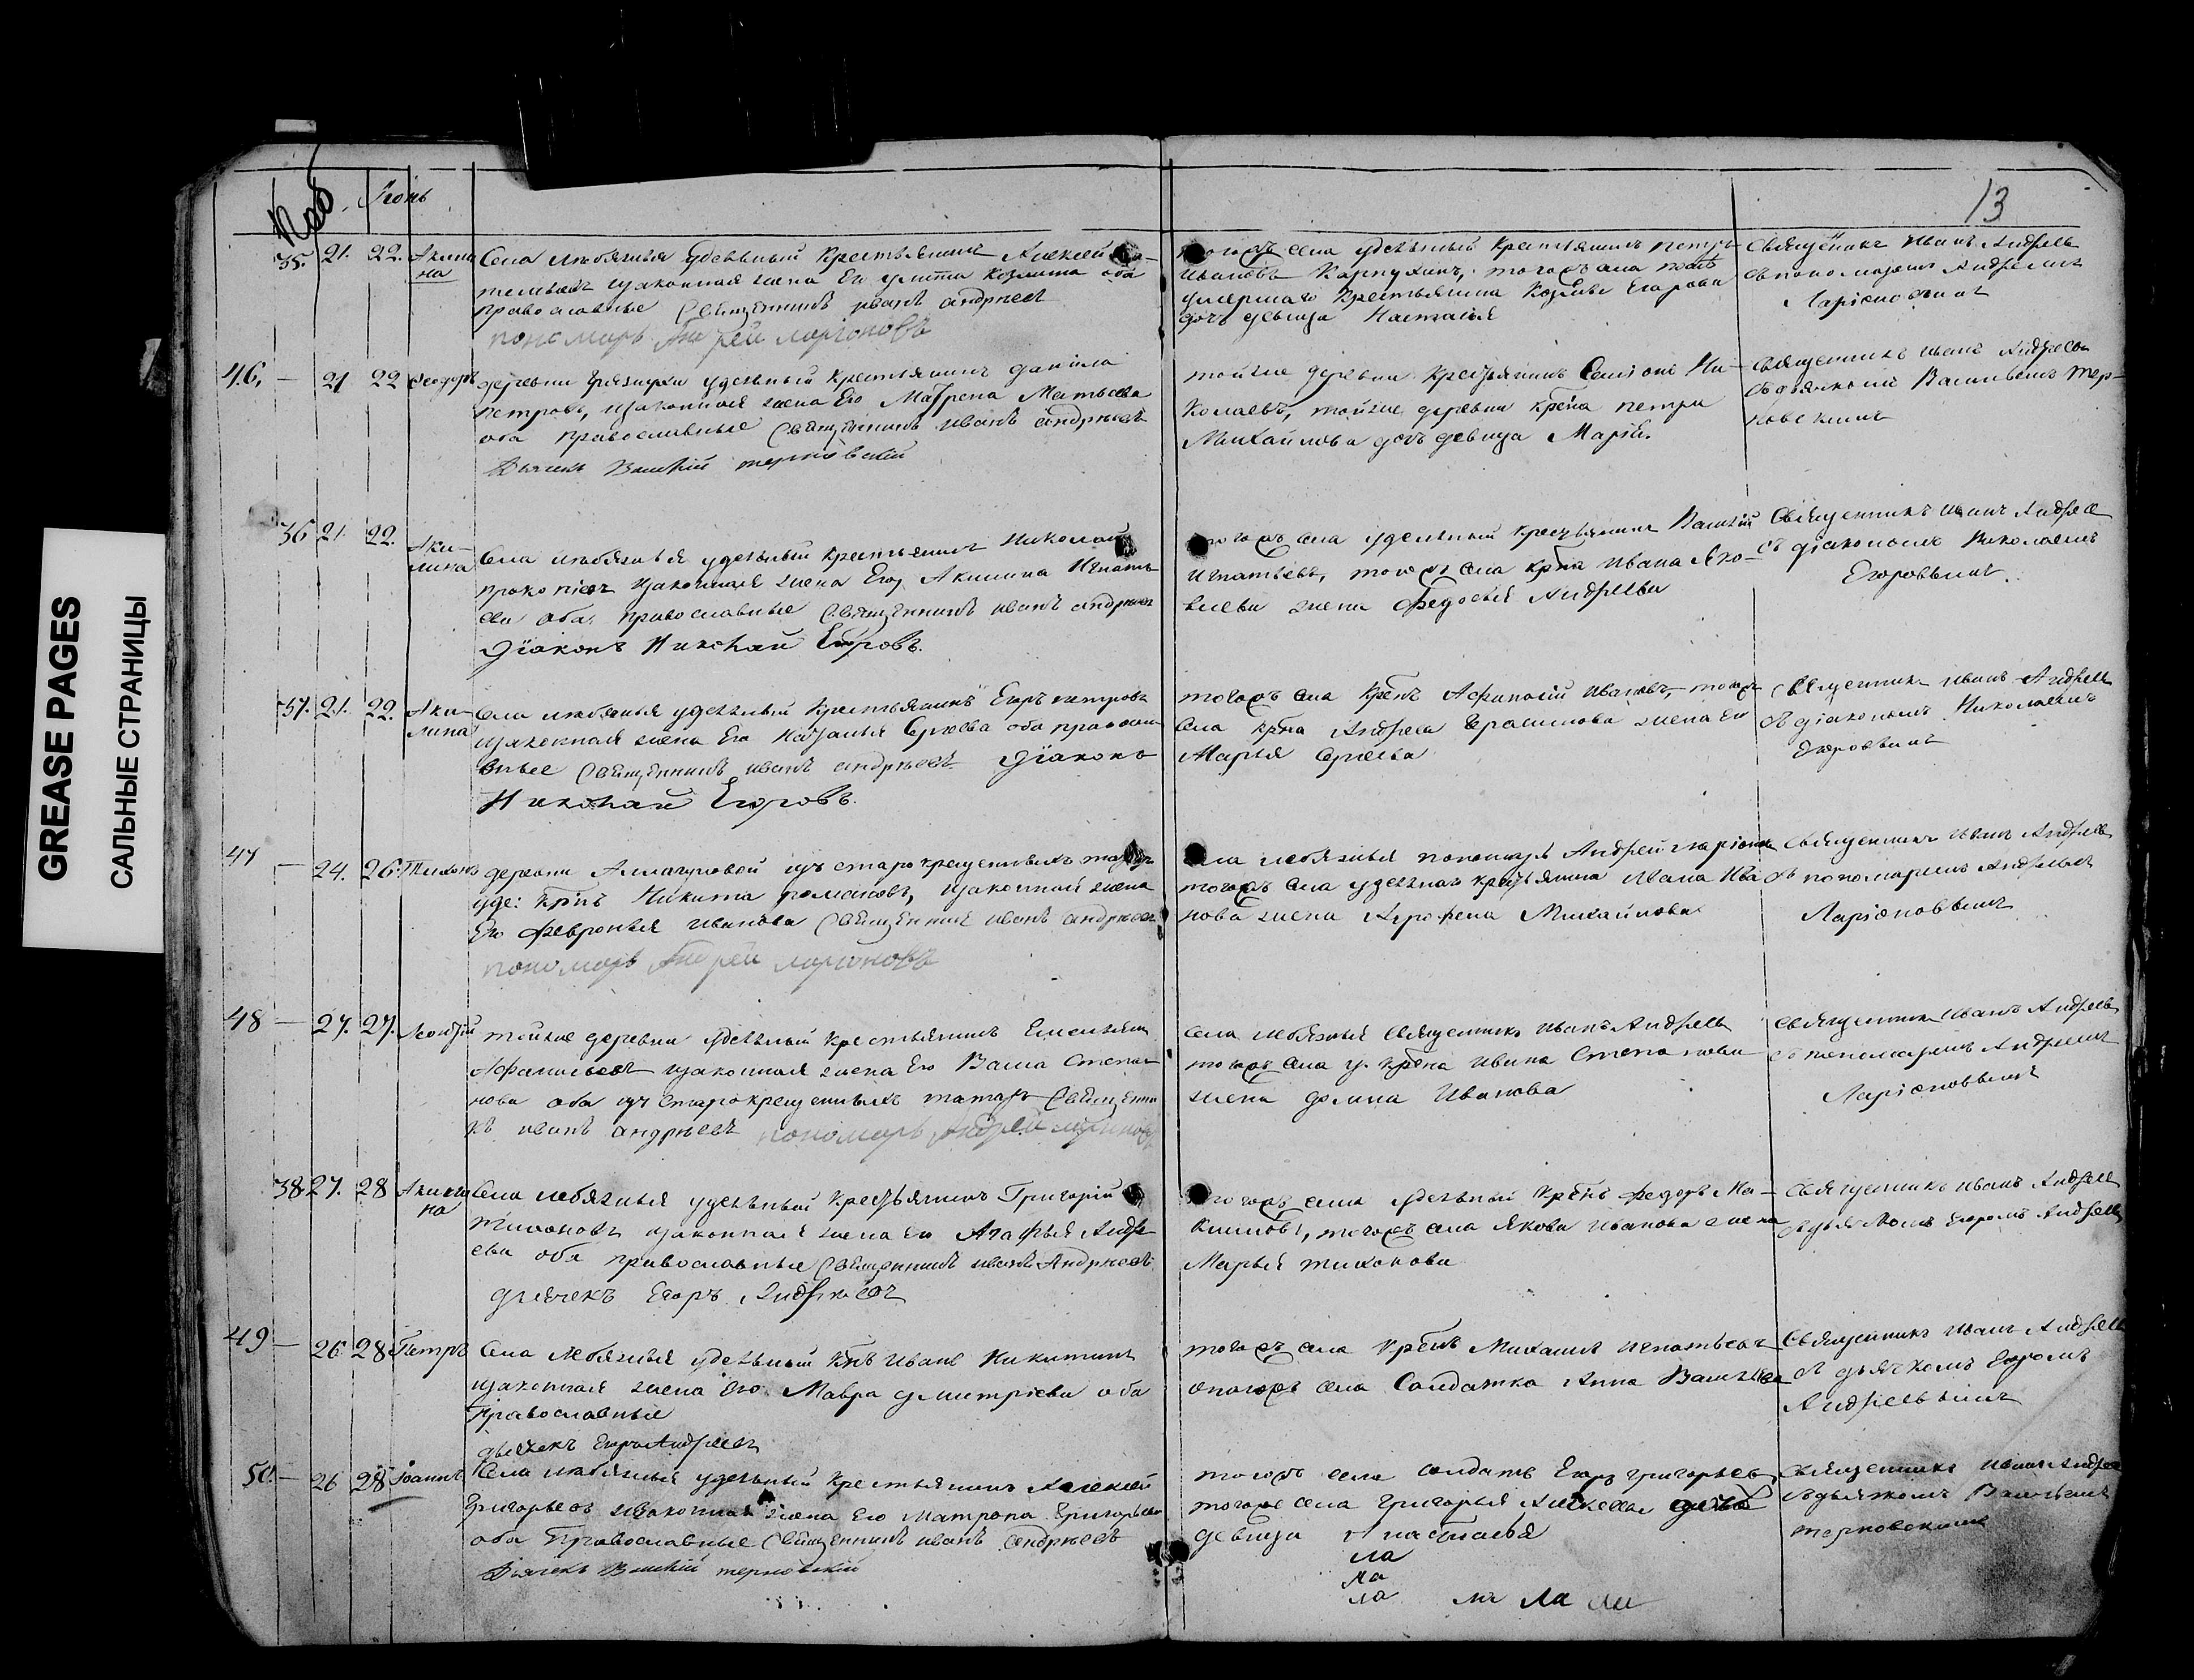 GREASE PAGES
САЛЬНЫЕ СТРАНИЦЫ
Іюнь
13
35. 21. 22. Акили
на
Села Любязныя удѣльный крестьянинъ Алексей
законная жена Его Улитта Козмина оба
православные священникъ иванъ андрѣевъ
пономарь Андрей Ларіоновъ
тогожъ села удѣльный крестьянинъ петръ
Ивановъ Карпухинъ, тогожъ села
умершаго крестьянина Егорова
дочь девица Наталья
Священникъ Иванъ Андреевъ
съ пономаремъ Андреемъ
Ларіоновымъ
46. — 21 22 Феодоръ
деревни Грязнухи удельный крестьянинъ данила
петровъ, законная жена Его Матрена Матвеева
оба православные священникъ иванъ андрѣевъ
Дьячекъ Василій терновскій
тойже деревни крестьянинъ Семіонъ Ни-
колаевъ, тойже деревни крѣна петра
Михайлова дочь девица Марья.
Священникъ Иванъ Андреевъ
съ дьячкомъ Васильемъ Тер-
новскимъ
36 21. 22. Аки-
лина
Села Любязныя удельный крестьянинъ Николай
прокопіевъ законная жена Его Акилина Игнать
ева оба православные священникъ иванъ андрѣевъ
діаконъ Николай Егоровъ.
тогожъ села удельный крестьянинъ Василій
Игнатьевъ, тогожъ села крѣна Ивана Яко-
влева жена Федосья Андреева
Священникъ Иванъ Андреев
съ діакономъ Николаемъ
Егоровымъ.
37. 21. 22. Аки-
лина
Села Любязныя удельный крестьянинъ Егоръ петровъ
законная жена Его Наталья Сергеева оба правосла
вные священникъ иванъ андрѣевъ діаконъ
Николай Егоровъ.
тогожъ села крѣнъ Афанасій Ивановъ, тогожъ
села крѣна Андрея Герасимова жена Его
Марья Сергеева
Священникъ Иванъ Андреевъ
съ діакономъ Николаемъ
Егоровымъ
47 — 24. 26. Тихонъ
деревни изъ старокрещенныхъ татаръ
уде: крѣнъ Никита романовъ, законная жена
Его Февронья Иванова священникъ иванъ андрѣевъ
пономарь Андрей Ларіоновъ
села Любязныя пономарь Андрей Ларіоновъ
тогожъ села удельнаго крестьянина Ивана Ива
нова жена Агрофена Михайлова
Священникъ Иванъ Андреевъ
съ пономаремъ Андреемъ
Ларіоновымъ
48 — 27. 27.
тойже деревни удельный крестьянинъ Емельянъ
Афанасьевъ законная жена Его Васса Степа-
нова оба изъ старокрещенныхъ татаръ священни
къ иванъ андрѣевъ пономарь Андрей Ларіоновъ
села Любязныя священникъ Иванъ Андреевъ
тогожъ села у. крѣна Ивана Степанова
жена домна Иванова
Священникъ Иванъ Андреевъ
съ пономаремъ Андреемъ
Ларіоновымъ
38. 27. 28 Акили
на
Села Любязныя удельный крестьянинъ Григорій
Тихоновъ законная жена Его Агафья Андре
ева оба православные священникъ иванъ Андрѣевъ
дьячекъ Егоръ Андреевъ
тогожъ села удельный крѣнъ Федоръ Ма-
ксимовъ, тогожъ села Якова Иванова жена
Марья тихонова
Священникъ Иванъ Андреевъ
съ дьячкомъ Егоромъ Андреевы
49 — 26. 28 Петръ
Села Любязныя удельный крѣнъ Иванъ Никитинъ
законная жена Его Мавра дмитріева оба
Православные
дьячекъ Егоръ Андреевъ
тогожъ села крѣнъ Михаилъ Игнатьевъ
тогожъ села Солдатка Анна Васильева
Священникъ Иванъ Андреевъ
съ дьячкомъ Егоромъ
Андреевымъ
50. — 26 28 Іоаннъ
Села Любязныя удельный крестьянинъ Алексей
Григорьевъ законная жена Его Матрона Григорьева
оба Православные священникъ иванъ андрѣевъ
Дьячекъ Василій терновскій
тогожъ села солдатъ Егоръ григорьевъ
тогоже села григорья Алексеева дочь
девица наталья
ла
ла
ла ла ла
Священникъ Иванъ Андреев
съ дьячкомъ Васильемъ
терновскимъ